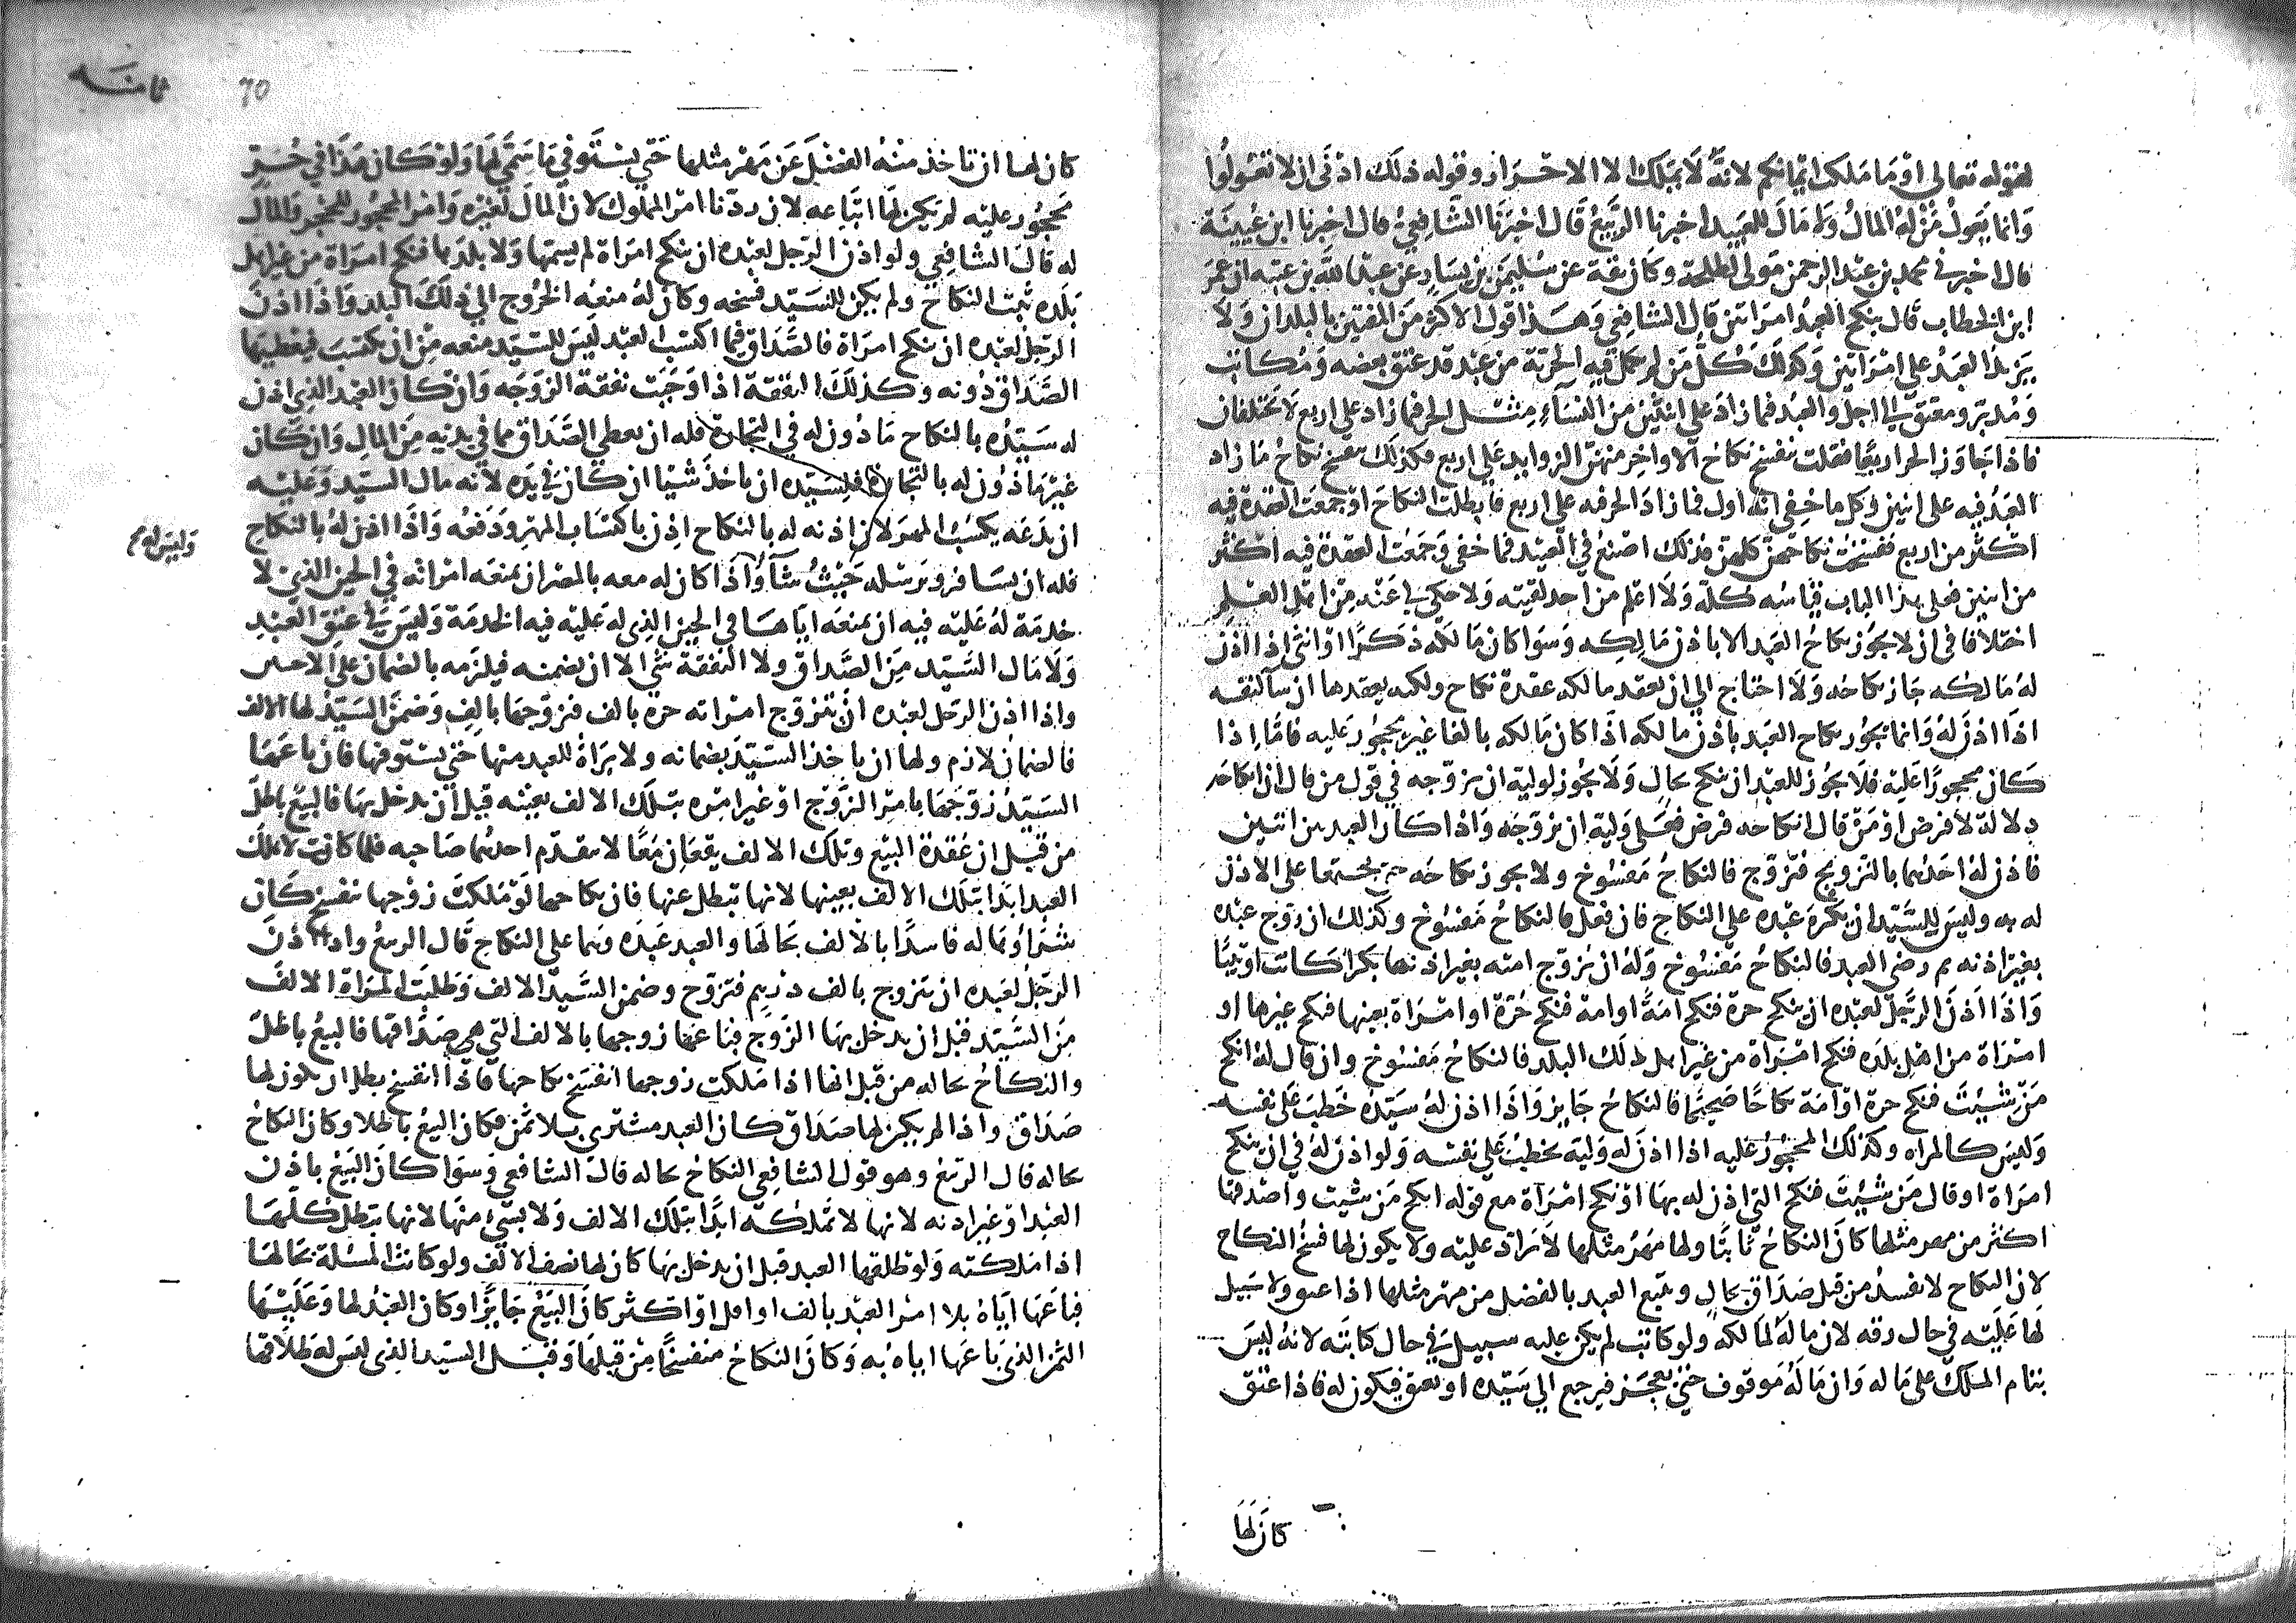 لقوله تعالى او ما ملكت ايمانكم لانه لا يملك الا الاحرار وقوله ذلك ادنى ان لا تعولوا
وانما يعول من له المال ولا مال للعبيد اخبرنا الربيع قال اخبرنا الشافعي قال اخبرنا ابن عيينة
قال اخبرني محمد بن عبد الرحمن مولى لطلحة وكان ثقة عن سليمن بن يسار عن عبد الله بن عتبه ان عمر
ابن الخطاب قال ينكح العبد امراتين قال الشافعي وهذا قول الاكثر من المفتين بالبلدان ولا
يزيد العبد على امراتين وكذلك كل من لم تكمل فيه الحرية من عبد قد عتق بعضه ومكاتب
ومدبر ومعتق الى اجل والعبد فيما زاد على اثنتين من النساء مثل الحر فيما زاد على اربع لا يختلفان
فاذا جاوز الحر اربعا فقلت ينفسخ نكاح الاواخر منهن الزوايد على اربع فكذلك ينفسخ نكاح ما زاد
العبد فيه على اثنين وكل ما خفي انه اول فيما زاد الحر فيه على اربع فابطلت النكاح او جمعت العقدة فيه
اكثر من اربع ففسخت نكاحهن كلهن فكذلك اصنع في العبد فيما خفي وجمعت العقدة فيه اكثر
من اثنين فعلى هذا الباب قياسه كله ولا اعلم من احد لقيته ولا حكي لي عنه من اهل العلم
اختلافا في ان لا يجوز نكاح العبد الا باذن مالكه وسوا كان مالكه ذكرا او انثى اذا اذن
له مالكه جاز نكاحه ولا احتاج الى ان يعقد مالكه عقدة نكاح ولكنه يعقدها ان شا لنفسه
اذا اذن له وانما يجوز نكاح العبد باذن مالكه اذا كان مالكه بالغا غير محجور عليه فاما اذا
كان محجورا عليه فلا يجوز للعبد ان ينكح بحال ولا يجوز لوليه ان يزوجه في قول من قال ان انكاحه
دلالة لا فرض او من قال انكاحه فرض فعلى وليه ان يزوجه واذا كان العبد بين اثنين
فاذن له احدهما بالتزويج فتزوج فالنكاح مفسوخ ولا يجوز نكاحه حتى يجتمعا على الاذن
له به وليس للسيد ان يكره عبده على النكاح فان فعل فالنكاح مفسوخ وكذلك ان زوج عبده
بغير اذنه ثم رضي العبد فالنكاح مفسوخ وله ان يزوج امته بغير اذنها بكرا كانت او ثيبا
واذا اذن الرجل لعبده ان ينكح حرة فنكح امة او امة فنكح حرة او امراة بعينها فنكح غيرها او
امراة من اهل بلده فنكح امراة من غير اهل ذلك البلد فالنكاح مفسوخ وان قال له انكح
من شيت فنكح حرة او امة نكاحا صحيحا فالنكاح جايز واذا اذن له سيده خطب على نفسه
وليس كالمراه وكذلك المحجور عليه اذا اذن له وليه يخطب على نفسه ولو اذن له في ان ينكح
امراة او قال من شيت فنكح التي اذن له بها او نكح امراة مع قوله انكح من شيت واصدقها
اكثر من مهر مثلها كان النكاح ثابتا ولها مهر مثلها لا يزاد عليه ولا يكون لها فسخ النكاح
لان النكاح لا يفسد من قبل صداق بحال ويتبع العبد بالفضل من مهر مثلها اذا عتق ولا سبيل
لها عليه في حال رقه لان ماله لمالكه ولو كاتب لم يكن عليه سبيل في حال كتابته لانه ليس
بتام الملك على ماله وان ماله موقوف حتى يعجز فيرجع الى سيده او يعتق فيكون له فاذا عتق
كان لها
ثامنه
70
كان لها ان تاخذ منه الفضل عن مهر مثلها حتى يستوفي ما سمى لها ولو كان هذا في حر
محجور عليه لم يكن لها اتباعه لان ردنا امر المملوك لان المال لغيره وامر المحجور للحجر والمال
له قال الشافعي ولو اذن الرجل لعبده ان ينكح امراة لم يسمها ولا بلدها فنكح امراة من غير اهل
بلده ثبت النكاح ولم يكن للسيد فسخه وكان له منعه الخروج الى ذلك البلد واذا اذن
الرجل لعبده ان ينكح امراة فالصداق فيما اكتسب العبد ليس للسيد منعه من ان يكتسب فيعطيها
الصداق دونه وكذلك النفقة اذا وجبت نفقة الزوجه وان كان العبد الذي اذن
له سيده بالنكاح ماذون له في التجارة فله ان يعطي الصداق مما في يديه من المال وان كان
غير ماذون له بالتجارة فلسيده ان ياخذ شيا ان كان في يده لانه مال السيد وعليه
ان يدعه يكسب المهر لان اذنه له بالنكاح اذن باكتساب المهر ودفعه واذا اذن له بالنكاح
وليس له
فله ان يسافر ويرسله حيث شا واذا كان له معه بالمصر ان يمنعه امراته في الحين الذي لا
خدمة له عليه فيه ان يمنعه اياها في الحين الذي له عليه فيه الخدمة وليس في عتق العبد
ولا مال السيد من الصداق ولا النفقة شي الا ان يضمنه فيلزمه بالضمان على الاجنبي
واذا اذن الرجل لعبده ان يتزوج امراته حره بالف فتزوجها بالف وضمن السيد لها الالف
فالضمان لازم ولها ان ياخذ السيد بضمانه ولا براة للعبد منها حتى يستوفيها فان باعها
السيد زوجها بامر الزوج او غير امره بتلك الالف بعينه قبل ان يدخل بها فالبيع باطل
من قبل ان عقدة البيع وتلك الالف يقعان معا لا يتقدم احدهما صاحبه فلما كانت لا تملك
العبد ابدا بتلك الالف بعينها لانها تبطل عنها فان نكاحها لو ملكت زوجها ينفسخ كان
شراوها له فاسدا بالالف بحالها والعبد عبده وهما على النكاح قال الربيع واذا اذن
الرجل لعبده ان يتزوج بالف درهم فتزوج وضمن السيد الالف وطلبت المراة الالف
من السيد قبل ان يدخل بها الزوج فباعها زوجها بالالف التي هي صداقها فالبيع باطل
والنكاح بحاله من قبل انها اذا ملكت زوجها انفسخ نكاحها فاذا انفسخ بطل ان يكون لها
صداق واذا لم يكن لها صداق كان العبد مشترى بلا ثمن فكان البيع باطلا وكان النكاح
بحاله قال الربيع وهو قول الشافعي النكاح بحاله قال الشافعي وسوا كان البيع باذن
العبد او غير اذنه لانها لا تملكه ابدا بتلك الالف ولا بشي منها لانها تبطل كلها
اذا ملكته ولو طلقها العبد قبل ان يدخل بها كان لها نصف الالف ولو كانت المسئلة بحالها
فباعها اياه بلا امر العبد بالف او اقل او اكثر كان البيع جايزا وكان العبد لها وعليها
الثمن الذي باعها اياه به وكان النكاح منفسخا من قبلها وقبل السيد الذي ليس له طلاقها